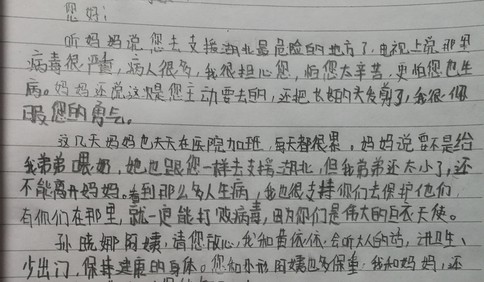 您好:
听妈妈说您去支援湖北最危险的地方了,电视上说那里
病毒很严重,病人很多,我很担心您,怕您太辛苦,更怕您也生
病。妈妈还说这次是您主动要去的,还把长长的头发剪了,我很佩
服您的勇气。
这几天妈妈也天天在医院加班,每天都很累,妈妈说要不是给
我弟弟喂奶,她也跟您一样去支援湖北,但我弟弟还太小了,还
不能离开妈妈。看到那么多人生病,我也很支持你们去保护他们,
有你们在那里,就一定能打败病毒,因为你们是伟大的白衣天使。
孙晓娜阿姨,请您放心,我和黄依依会听大人的话,讲卫生、
少出门,保持健康的身体。您和小彤阿姨也多保重,我和妈妈,还